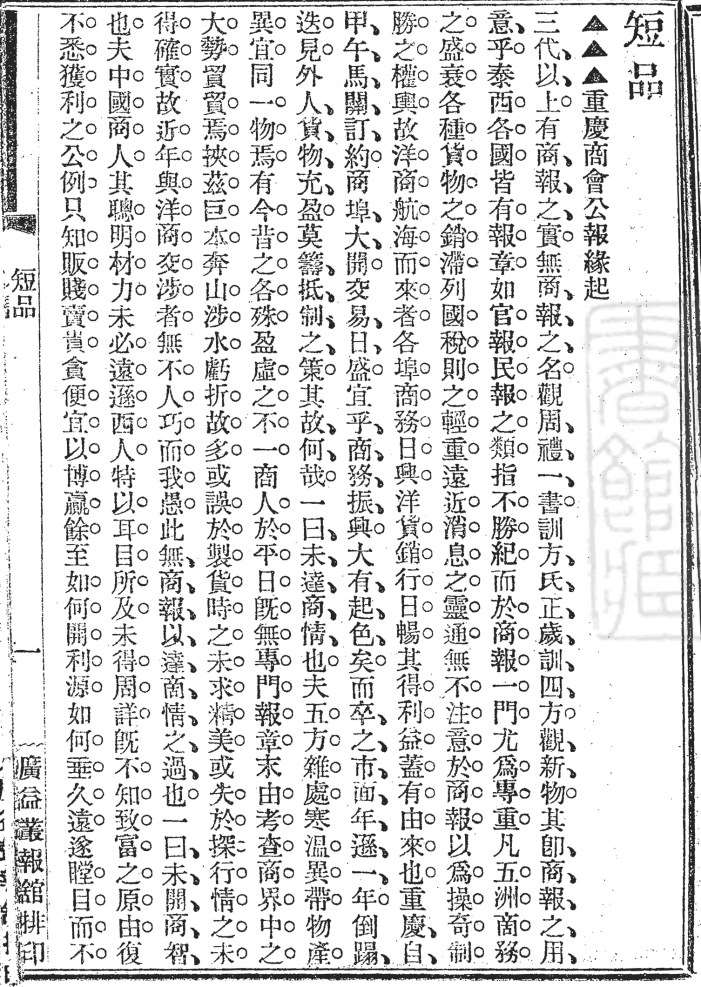 短品
▲▲▲重慶商會公報緣起
三代以上有商報之實無商報之名觀周禮一書訓方氏正歲訓四方觀新物其卽商報之用
意乎泰西各國皆有報章如官報民報之類指不勝紀而於商報一門尤爲專重凡五洲商務
之盛衰各種貨物之銷滯列國稅則之輕重遠近消息之靈通無不注意於商報以爲操奇制
勝之權輿故洋商航海而來者各埠商務日興洋貨銷行日暢其得利益蓋有由來也重慶自
甲午馬關訂約商埠大開交易日盛宜乎商務振興大有起色矣而卒之市面年遜一年倒蹋
迭見外人貨物充盈莫籌抵制之策其故何哉一曰未達商情也夫五方雜處寒溫異帶物產
異宜同一物焉有今昔之各殊盈虛之不一商人於平日旣無專門報章末由考查商界中之
大勢貿貿焉挾茲巨本奔山涉水虧折故多或誤於製貨時之未求精美或失於探行情之未
得確實故近年與洋商交涉者無不人巧而我愚此無商報以達商情之過也一曰未開商智
也夫中國商人其聰明材力未必遠遜西人特以耳目所及未得周詳旣不知致富之原由復
不悉獲利之公例只知販賤賣貴貪便宜以博贏餘至如何開利源如何垂久遠遂瞠目而不
短品
一
廣益叢報館排印